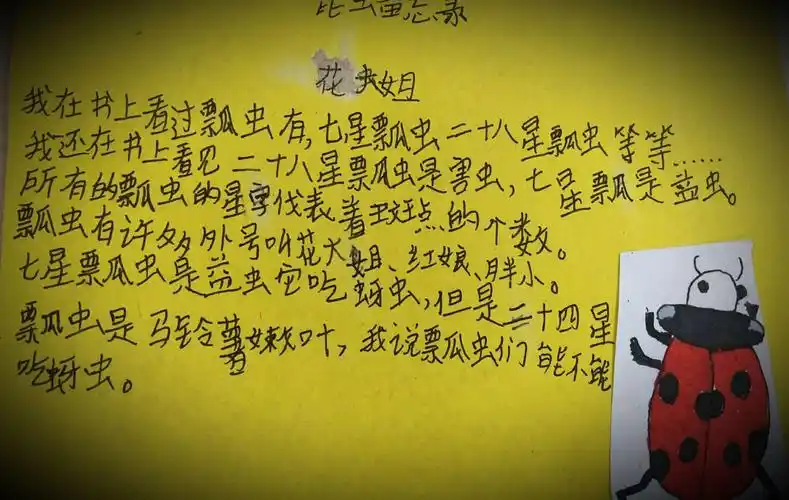 昆虫备忘录
花大姐
我在书上看过瓢虫有,七星瓢虫二十八星瓢虫等等……
我还在书上看见二十八星瓢虫是害虫,七星瓢虫是益虫。
所有的瓢虫的星字代表着斑点的个数。
瓢虫有许多外号叫花大姐、红娘、胖小。
七星瓢虫是益虫它吃蚜虫,但是二十四星
瓢虫是马铃薯嫩叶,我说瓢虫们能不能
吃蚜虫。